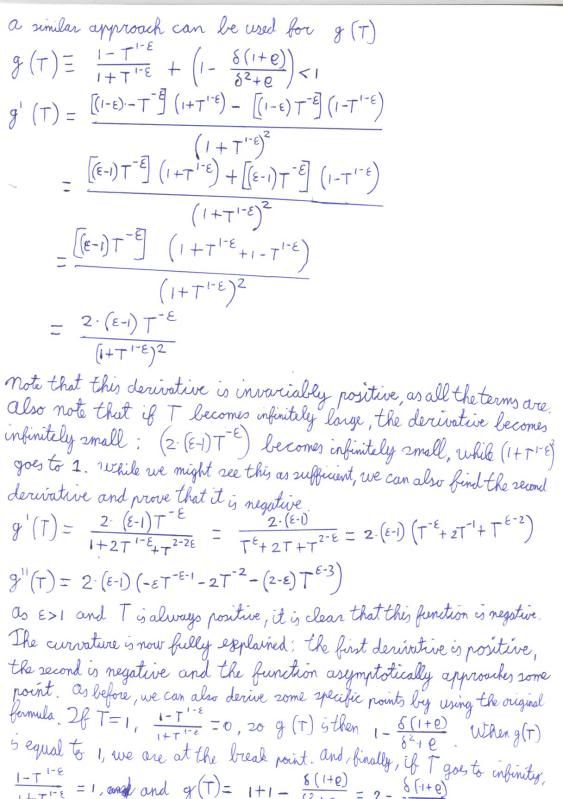 a similar approach can be used for g(T)
g(T) ≡ (1-T^{1-ε})/(1+T^{1-ε}) + (1 - δ(1+e)/(δ²+e)) < 1
g'(T) = ([(1-ε)·-T^{-ε}](1+T^{1-ε}) - [(1-ε)T^{-ε}](1-T^{1-ε}))/(1+T^{1-ε})²
= ([(ε-1)T^{-ε}](1+T^{1-ε}) + [(ε-1)T^{-ε}](1-T^{1-ε}))/(1+T^{1-ε})²
= ([(ε-1)T^{-ε}] (1+T^{1-ε}+1-T^{1-ε}))/(1+T^{1-ε})²
= (2·(ε-1)T^{-ε})/(1+T^{1-ε})²
Note that this derivative is invariably positive, as all the terms are.
Also note that if T becomes infinitely large, the derivative becomes
infinitely small: (2·(ε-1)T^{-ε}) becomes infinitely small, while (1+T^{1-ε})
goes to 1. While we might see this as sufficient, we can also find the second
derivative and prove that it is negative.
g'(T) = (2·(ε-1)T^{-ε})/(1+2T^{1-ε}+T^{2-2ε}) = (2·(ε-1))/(T^{ε}+2T+T^{2-ε}) = 2·(ε-1)(T^{-ε}+2T^{-1}+T^{ε-2})
g''(T) = 2·(ε-1)(-εT^{-ε-1}-2T^{-2}-(2-ε)T^{ε-3})
As ε>1 and T is always positive, it is clear that this function is negative.
The curvature is now fully explained: the first derivative is positive,
the second is negative and the function asymptotically approaches some
point. As before, we can also derive some specific points by using the original
formula. If T=1, (1-T^{1-ε})/(1+T^{1-ε}) = 0, so g(T) is then 1 - δ(1+e)/(δ²+e). When g(T)
is equal to 1, we are at the break point. And, finally, if T goes to infinity,
(1-T^{1-ε})/(1+T^{1-ε}) = 1, and g(T) = 1+1- δ(1+e)/(δ²+e) = 2- δ(1+e)